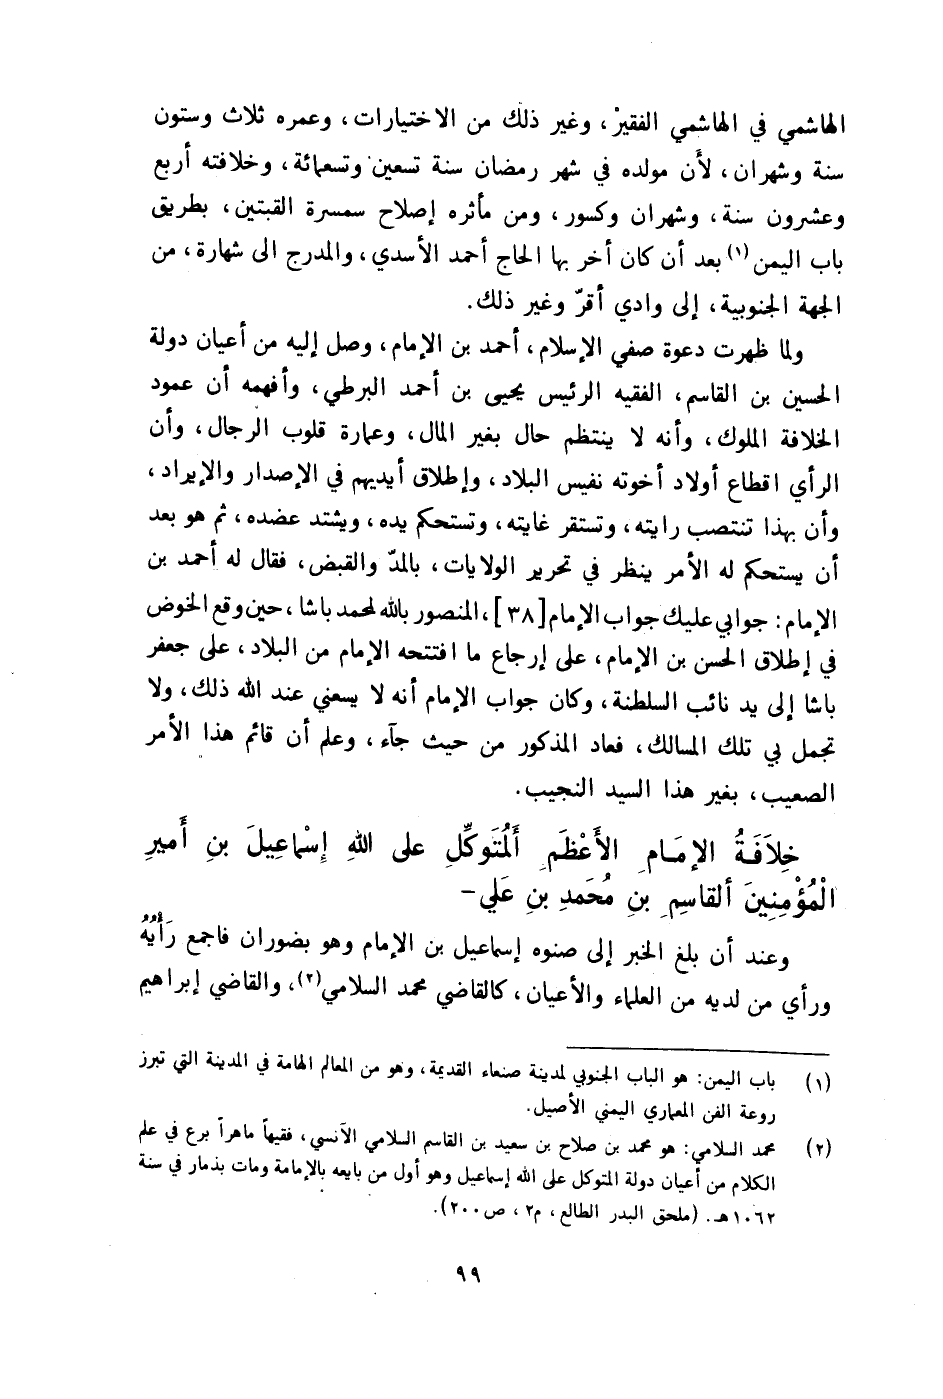 الهاشمي في الهاشمي الفقير، وغير ذلك من الاختيارات، وعمره ثلاث وستون
سنة وشهران، لأن مولده في شهر رمضان سنة تسعين وتسعمائة، وخلافته أربع
وعشرون سنة، وشهران وكسور، ومن مأثره إصلاح سمسرة القبتين، بطريق
باب اليمن(١) بعد أن كان أخر بها الحاج أحمد الأسدي، والمدرج الى شهارة، من
الجهة الجنوبية، إلى وادي أقرّ وغير ذلك.
ولما ظهرت دعوة صفي الإسلام، أحمد بن الإمام، وصل إليه من أعيان دولة
الحسين بن القاسم، الفقيه الرئيس يحيى بن أحمد البرطي، وأفهمه أن عمود
الخلافة الملوك، وأنه لا ينتظم حال بغير المال، وعمارة قلوب الرجال، وأن
الرأي اقطاع أولاد أخوته نفيس البلاد، وإطلاق أيديهم في الإصدار والإيراد،
وأن بهذا تنتصب رايته، وتستقر غايته، وتستحكم يده، ويشتد عضده، ثم هو بعد
أن يستحكم له الأمر ينظر في تحرير الولايات، بالمدّ والقبض، فقال له أحمد بن
الإمام: جوابي عليك جواب الإمام [٣٨]، المنصور بالله لمحمد باشا، حين وقع الخوض
في إطلاق الحسن بن الإمام، على إرجاع ما افتتحه الإمام من البلاد، على جعفر
باشا إلى يد نائب السلطنة، وكان جواب الإمام أنه لا يسعني عند الله ذلك، ولا
تجمل بي تلك المسالك، فعاد المذكور من حيث جآء، وعلم أن قائم هذا الأمر
الصعيب، بغير هذا السيد النجيب.
خِلَافَةُ الإمَامِ الأَعْظَمِ أَلْمُتَوَكِّلِ على اللهِ إسْماعِيلَ بنِ أَميرِ
الْمُؤْمِنِينَ ألقاسِمِ بنِ مُحَمدِ بنِ عَلي-
وعند أن بلغ الخبر إلى صنوه إسماعيل بن الإمام وهو بضوران فاجمع رَأْيُهُ
ورأي من لديه من العلماء والأعيان، كالقاضي محمد السلامي(٢)، والقاضي إبراهيم
(١) باب اليمن: هو الباب الجنوبي لمدينة صنعاء القديمة، وهو من المعالم الهامة في المدينة التي تبرز
روعة الفن المعماري اليمني الأصيل.
(٢) محمد السلامي: هو محمد بن صلاح بن سعيد بن القاسم السلامي الآنسي، فقيهاً ماهراً برع في علم
الكلام من أعيان دولة المتوكل على الله إسماعيل وهو أول من بايعه بالإمامة ومات بذمار في سنة
١٠٦٢هـ. (ملحق البدر الطالع، م٢، ص٢٠٠).
٩٩